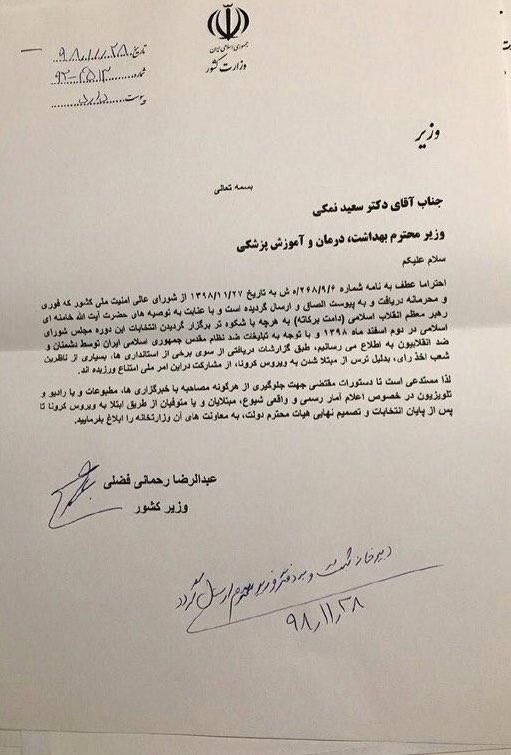 جمهوری اسلامی ایران
وزارت کشور
تاریخ: ۹۸/۱۱/۲۸
شماره:
پیوست: دارد
وزیر
بسمه تعالی
جناب آقای دکتر سعید نمکی
وزیر محترم بهداشت، درمان و آموزش پزشکی
سلام علیکم
احتراما عطف به نامه شماره ۲۶۸/۹/۶/ه ش به تاریخ ۱۳۹۸/۱۱/۲۷ از شورای عالی امنیت ملی کشور که فوری
و محرمانه دریافت و به پیوست الصاق و ارسال گردیده است و با عنایت به توصیه های حضرت آیت الله خامنه ای
رهبر معظم انقلاب اسلامی (دامت برکاته) به هرچه با شکوه تر برگزار گردیدن انتخابات این دوره مجلس شورای
اسلامی در دوم اسفند ماه ۱۳۹۸ و با توجه به تبلیغات ضد نظام مقدس جمهوری اسلامی ایران توسط دشمنان و
ضد انقلابیون به اطلاع می رسانیم، طبق گزارشات دریافتی از سوی برخی از استانداری ها، بسیاری از ناظرین
شعب اخذ رای، بدلیل ترس از مبتلا شدن به ویروس کرونا، از مشارکت دراین امر ملی امتناع ورزیده اند.
لذا مستدعی است تا دستورات مقتضی جهت جلوگیری از هرگونه مصاحبه با خبرگزاری ها، مطبوعات و یا رادیو و
تلویزیون در خصوص اعلام آمار رسمی و واقعی شیوع، مبتلایان و یا متوفیان از طریق ابتلا به ویروس کرونا تا
پس از پایان انتخابات و تصمیم نهایی هیات محترم دولت، به معاونت های آن وزارتخانه را ابلاغ بفرمایید.
عبدالرضا رحمانی فضلی
وزیر کشور
دبیرخانه ثبت و به دفتر وزیر محترم ارسال گردد
۹۸/۱۱/۲۸